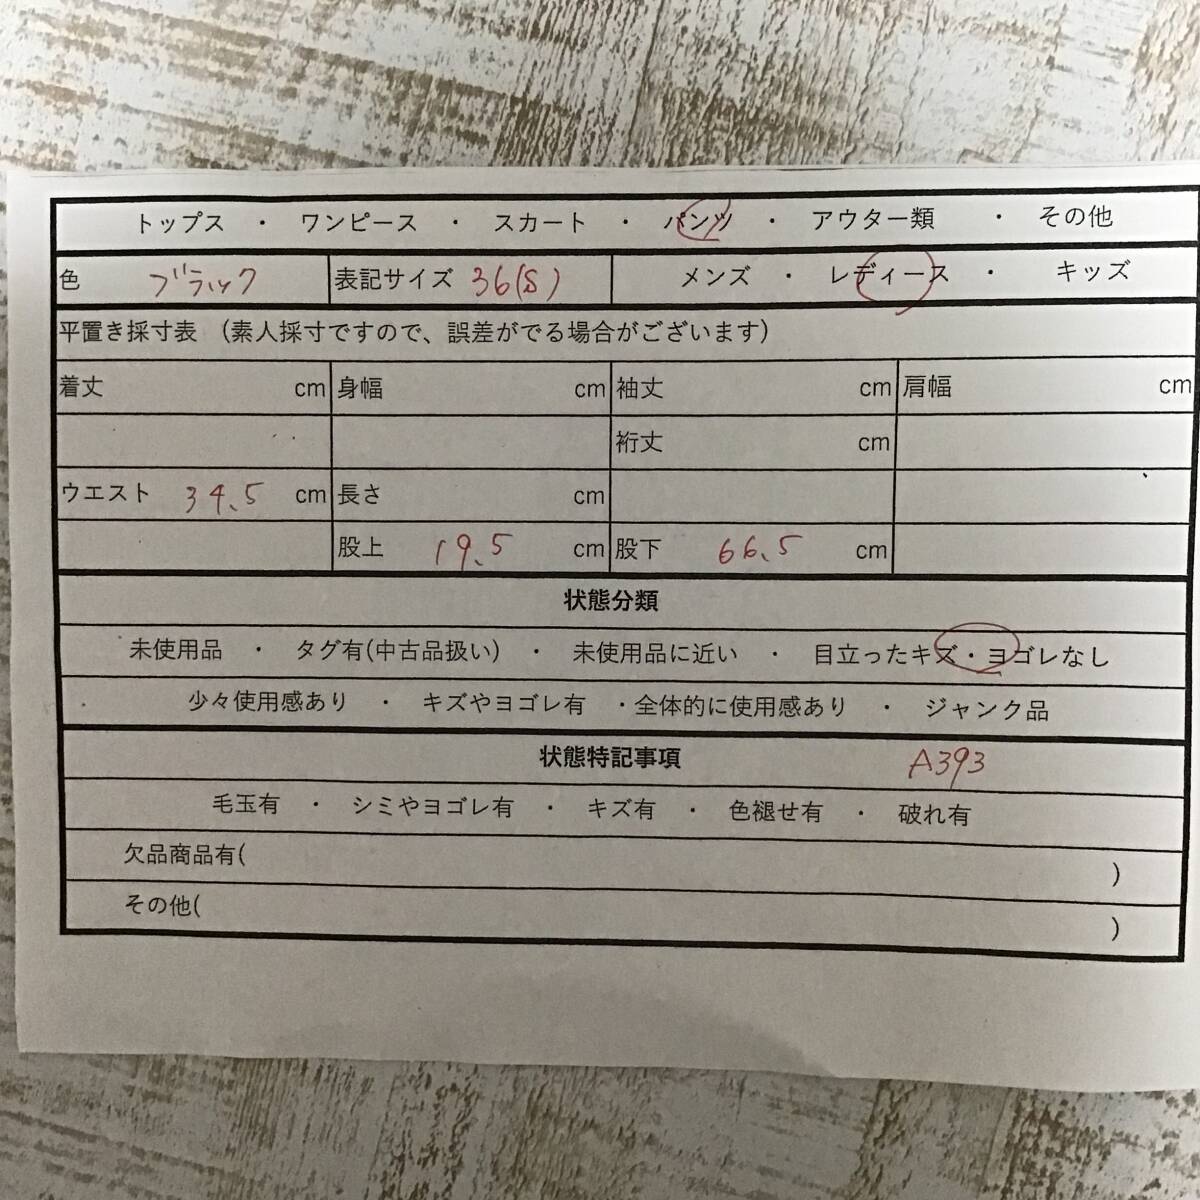 トップス ・ ワンピース ・ スカート ・ パンツ ・ アウター類 ・ その他
色 ブラック 表記サイズ 36(S) メンズ ・ レディース ・ キッズ
平置き採寸表 (素人採寸ですので、誤差がでる場合がございます)
着丈 cm 身幅 cm 袖丈 cm 肩幅 cm
裄丈 cm
ウエスト 34.5 cm 長さ cm
股上 19.5 cm 股下 66.5 cm
状態分類
未使用品 ・ タグ有(中古品扱い) ・ 未使用品に近い ・ 目立ったキズ・ヨゴレなし
少々使用感あり ・ キズやヨゴレ有 ・全体的に使用感あり ・ ジャンク品
状態特記事項 A393
毛玉有 ・ シミやヨゴレ有 ・ キズ有 ・ 色褪せ有 ・ 破れ有
欠品商品有( )
その他( )